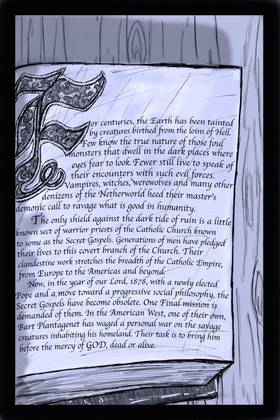 For centuries, the Earth has been tainted
by creatures birthed from the loins of Hell.
Few know the true nature of those foul
monsters that dwell in the dark places where
eyes fear to look. Fewer still live to speak of
their encounters with such evil forces.
Vampires, witches, werewolves and many other
denizens of the Netherworld heed their master's
demonic call to ravage what is good in humanity.
The only shield against the dark tide of ruin is a little
known sect of warrior priests of the Catholic Church known
to some as the Secret Gospels. Generations of men have pledged
their lives to this covert branch of the Church. Their
clandestine work stretches the breadth of the Catholic Empire,
from Europe to the Americas and beyond.
Now, in the year of our Lord, 1878, with a newly elected
Pope and a move toward a progressive social philosophy, the
Secret Gospels have become obsolete. One Final mission is
demanded of them. In the American West, one of their own,
Bart Plantagenet has waged a personal war on the savage
creatures inhabiting his homeland. Their task is to bring him
before the mercy of GOD, dead or alive.